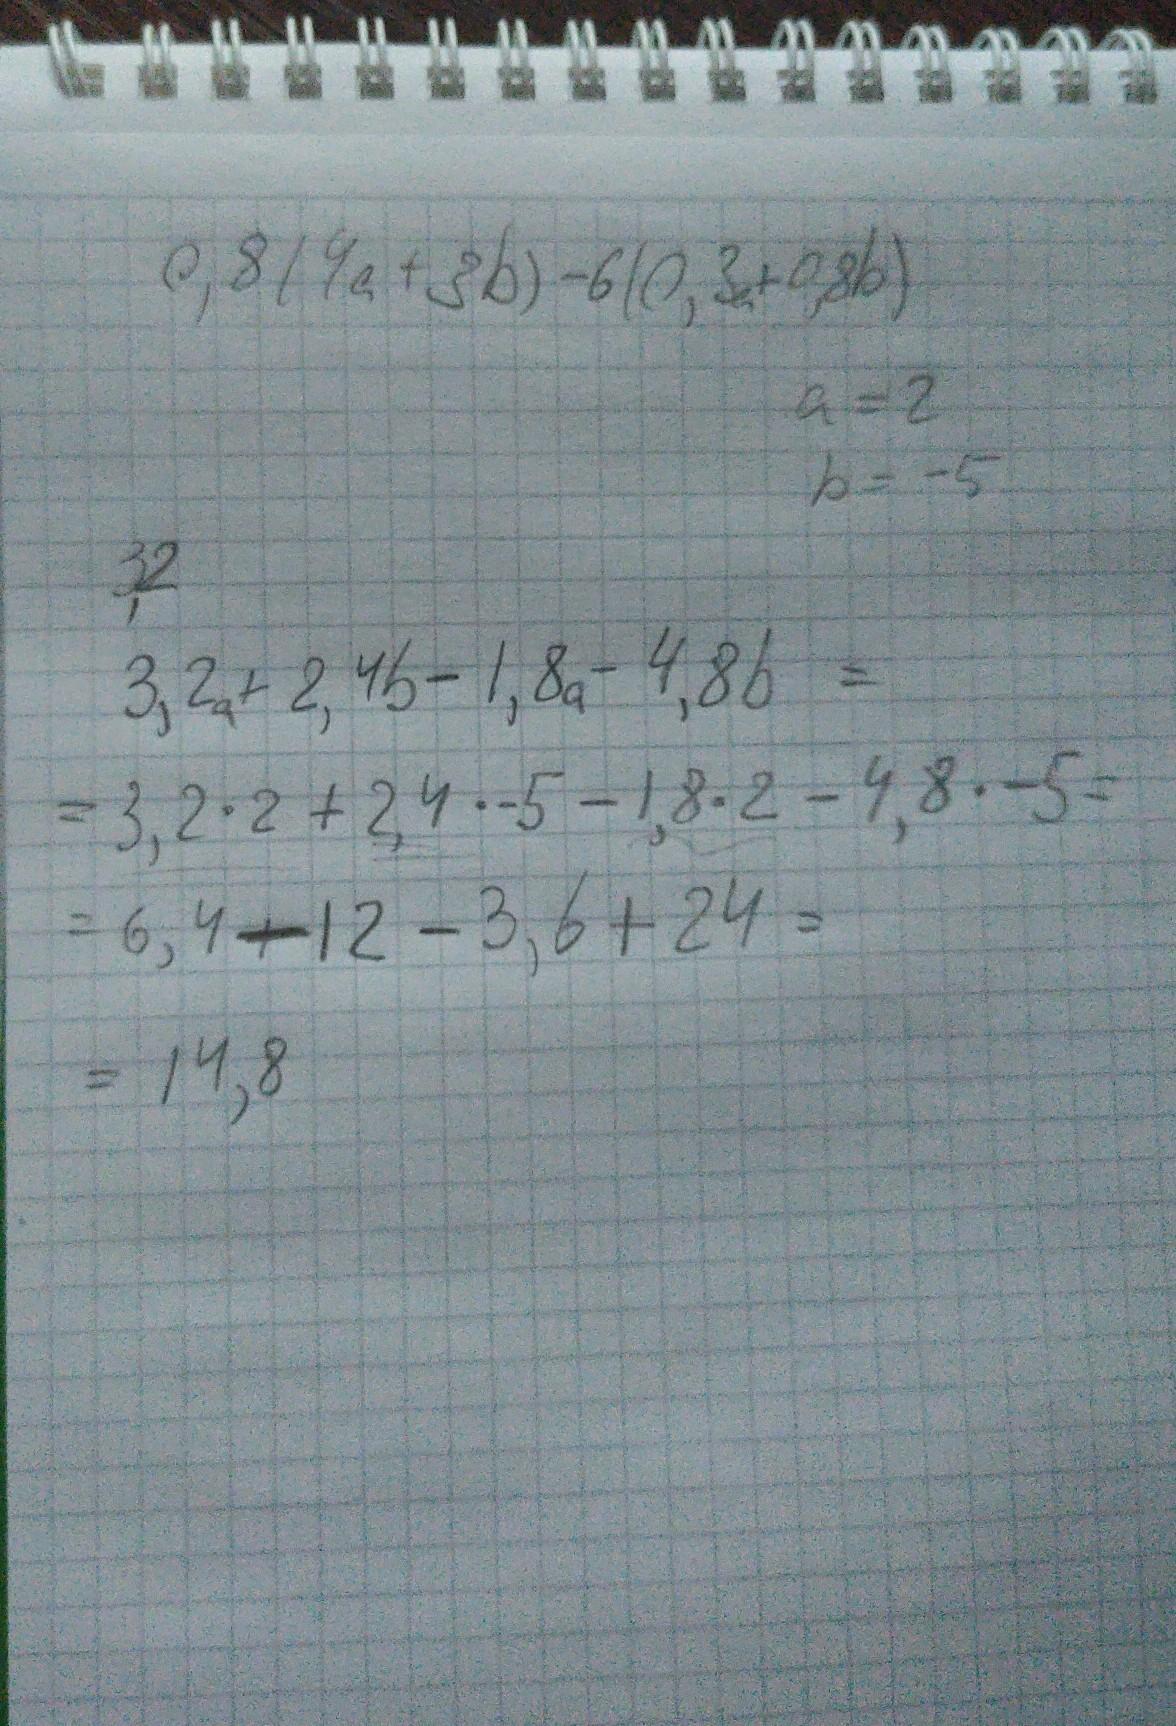 0,8(4a+3b)-6(0,3a+0,8b)
a=2
b=-5
3,2
3,2a+2,4b-1,8a-4,8b =
=3,2·2+2,4·-5-1,8·2-4,8·-5=
=6,4-12-3,6+24=
= 14,8